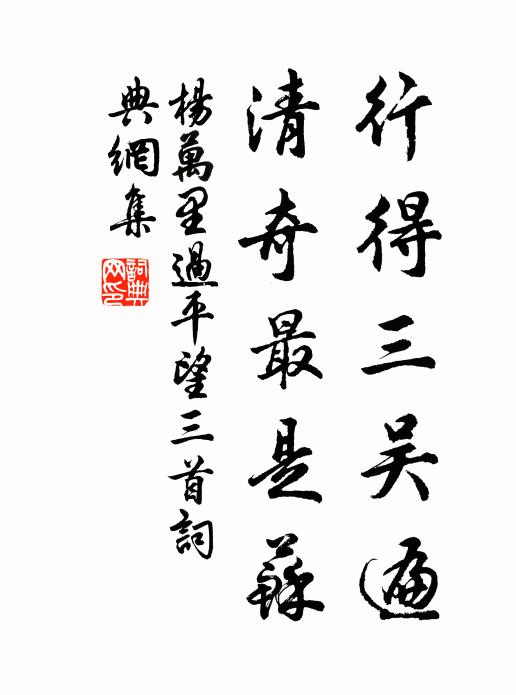 行得三吴遍
清奇最是蘇
楊萬里過平望三首詞
典網集
詞典
网印